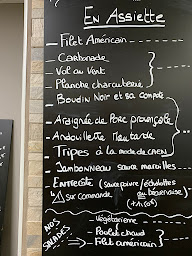 En Assiette
- Filet Américain
- Carbonade
- Vol au Vent
- Planche charcuterie
- Boudin Noir et sa compote
- Araignée de Porc provençale
- Andouillette Moutarde
- Tripes à la mode de caen
- Jambonneau sauce maroilles
- Entrecôte (sauce poivre / échalottes
⚠ sur commande ou béarnaise)
(+1,00€)
NOS SALADES
→ Végétarienne
→ Poulet chaud
→ Filet américain